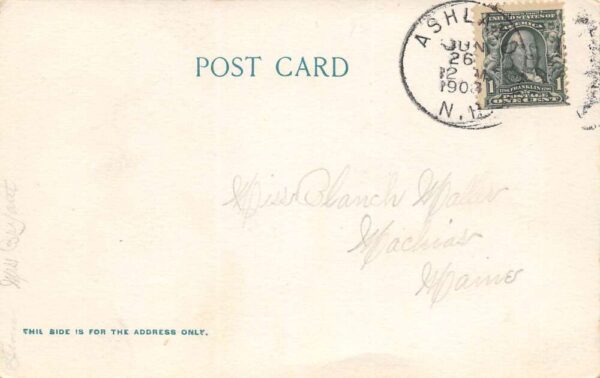 POST CARD
ASHLAND
JUN
26
12
1908
N.H.
UNITED STATES OF AMERICA
1 1
POSTAGE
ONE CENT
Miss Blanch
Machias
Maine
THIS SIDE IS FOR THE ADDRESS ONLY.